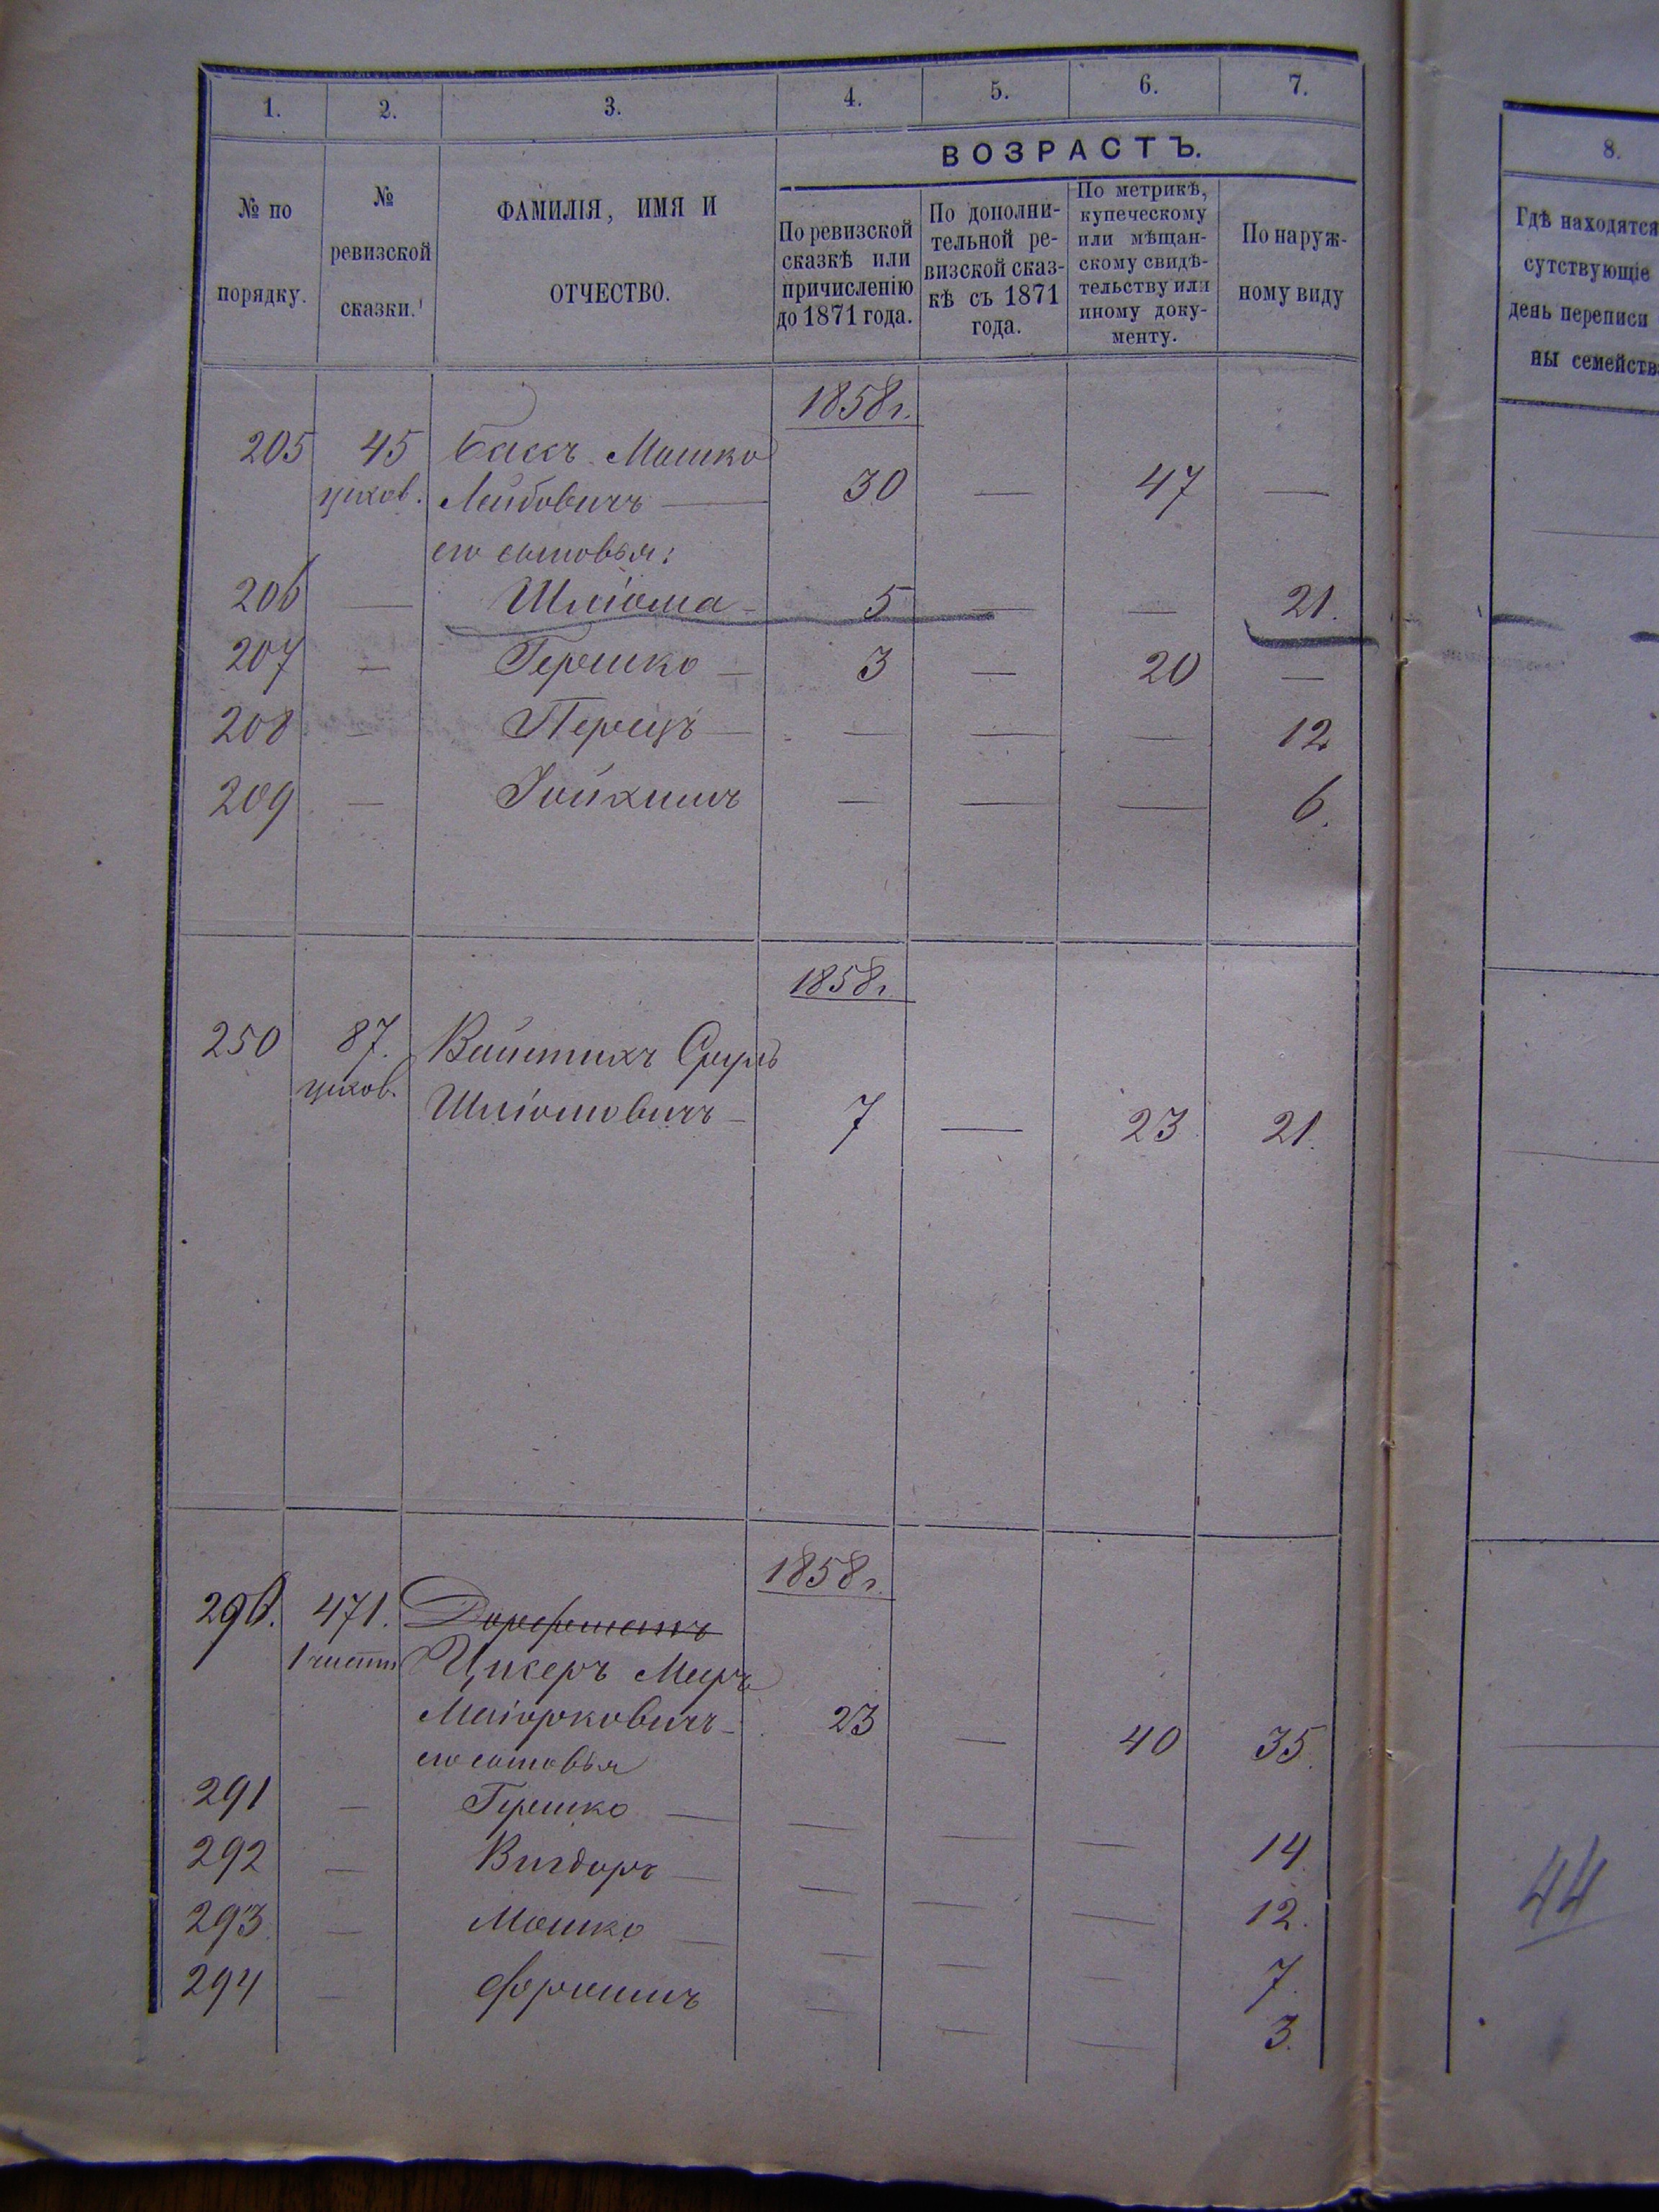 1. 2. 3. 4. 5. 6. 7.
ВОЗРАСТЪ.
№ по
порядку.
№
ревизской
сказки.
ФАМИЛІЯ, ИМЯ И
ОТЧЕСТВО.
По ревизской
сказкѣ или
причисленію
до 1871 года.
По дополни-
тельной ре-
визской сказ-
кѣ съ 1871
года.
По метрикѣ,
купеческому
или мѣщан-
скому свидѣ-
тельству или
иному доку-
менту.
По наруж-
ному виду
1858 г.
205 45 Бассъ Мошко
Лейбовичъ — 30 — 47 —
его сыновья:
206 — Шліома — 5 — — 21.
207 — Гершко — 3 — 20 —
208 — Перецъ — — — — 12
209 — Іойхимъ — — — 6.
1858 г.
250 87. Сруль
Шліомовичъ — 7 — 23 21.
1858 г.
290. 471. Дорфманъ
Цикеръ Меръ
Маіорковичъ — 23 — 40 35.
его сыновья
291 — Гершко — — — — 14
292 — Вигдоръ — — — — 12.
293 — Мошко — — — — 7.
294 — Фроимъ — — — 3.
8.
Гдѣ находятся
сутствующіе
день переписи
ны семейств
44